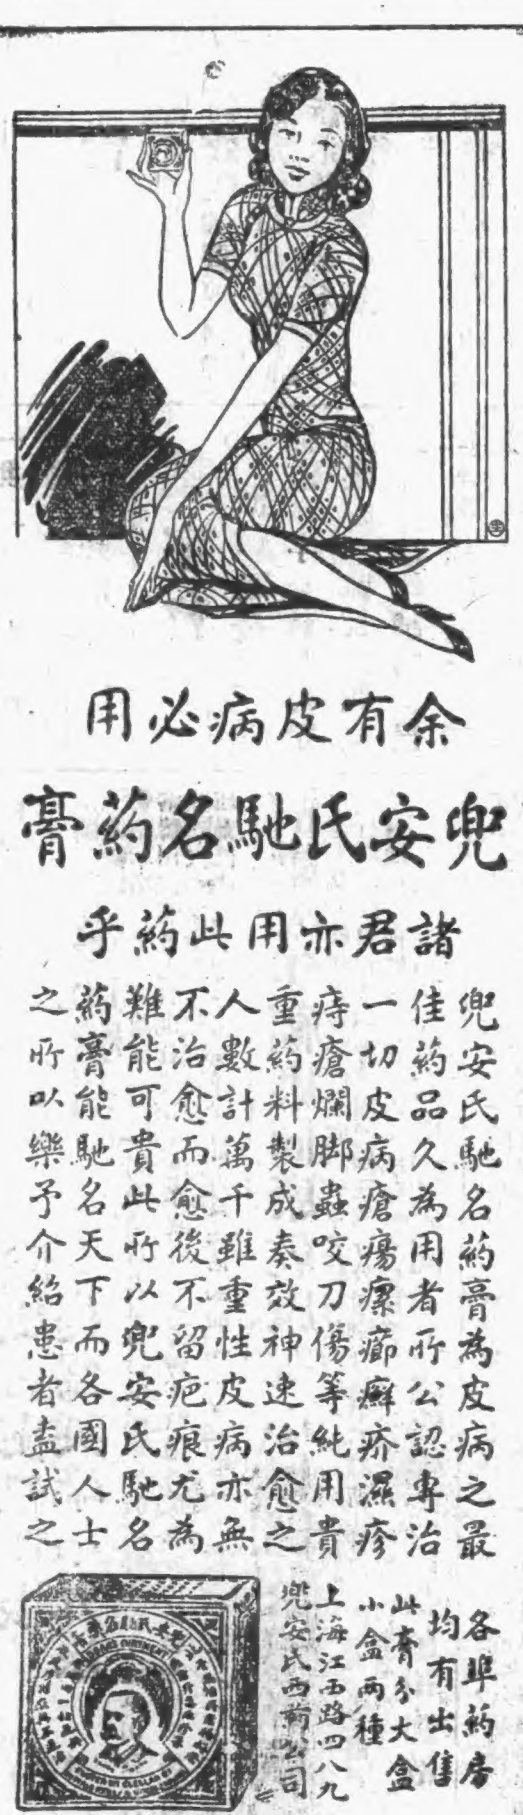 余有皮病必用
兜安氏馳名葯膏
諸君亦用此葯乎
兜安氏馳名葯膏為皮病之最
佳葯品久為用者所公認專治
一切皮病瘡瘍瘰癤癬疥濕疹
痔瘡爛脚蟲咬刀傷等純用貴
重葯料製成奏效神速治愈之
人數計萬千雖重性皮病亦無
不治愈而愈後不留疤痕尤為
難能可貴此所以兜安氏馳名
葯膏能馳名天下而各國人士
之所以樂予介紹患者盍試之
各埠葯房
均有出售
此膏分大盒
小盒兩種
上海江西路四八九
兜安氏西葯公司
DOANS OINTMENT